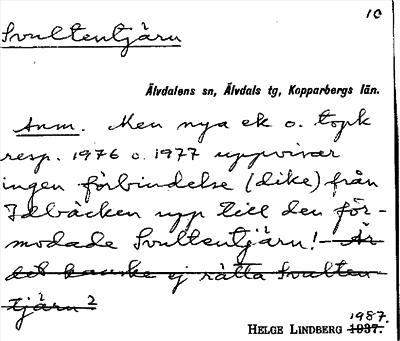 10
Svultentjärn
Älvdalens sn, Älvdals tg, Kopparbergs län.
Anm. Men nya ek o. topk
resp. 1976 o. 1977 uppvisar
ingen förbindelse (dike) från
Idbäcken upp till den för-
modade Svultentjärn! Är
det kanske ej rätta Svulten
tjärn?
1987.
HELGE LINDBERG 1937.